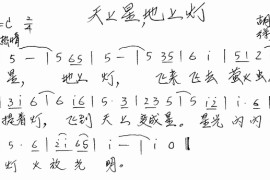 天上星,地上灯
=C 2/4
5 — | 5 65 | 5 — | 5 35 | 6 i | 5 1 2
星, 地上 灯, 飞来 飞去 萤火虫
3 i 6 | 6 i 6 | 5 · 3 | 2 3 5 | 5 i 2 | i · 6
提着灯, 飞到 天上 变成星。 星光 闪闪
5 · 6 | 2 i 6 5 | i — | i 0 ‖
灯 火 放光 明。